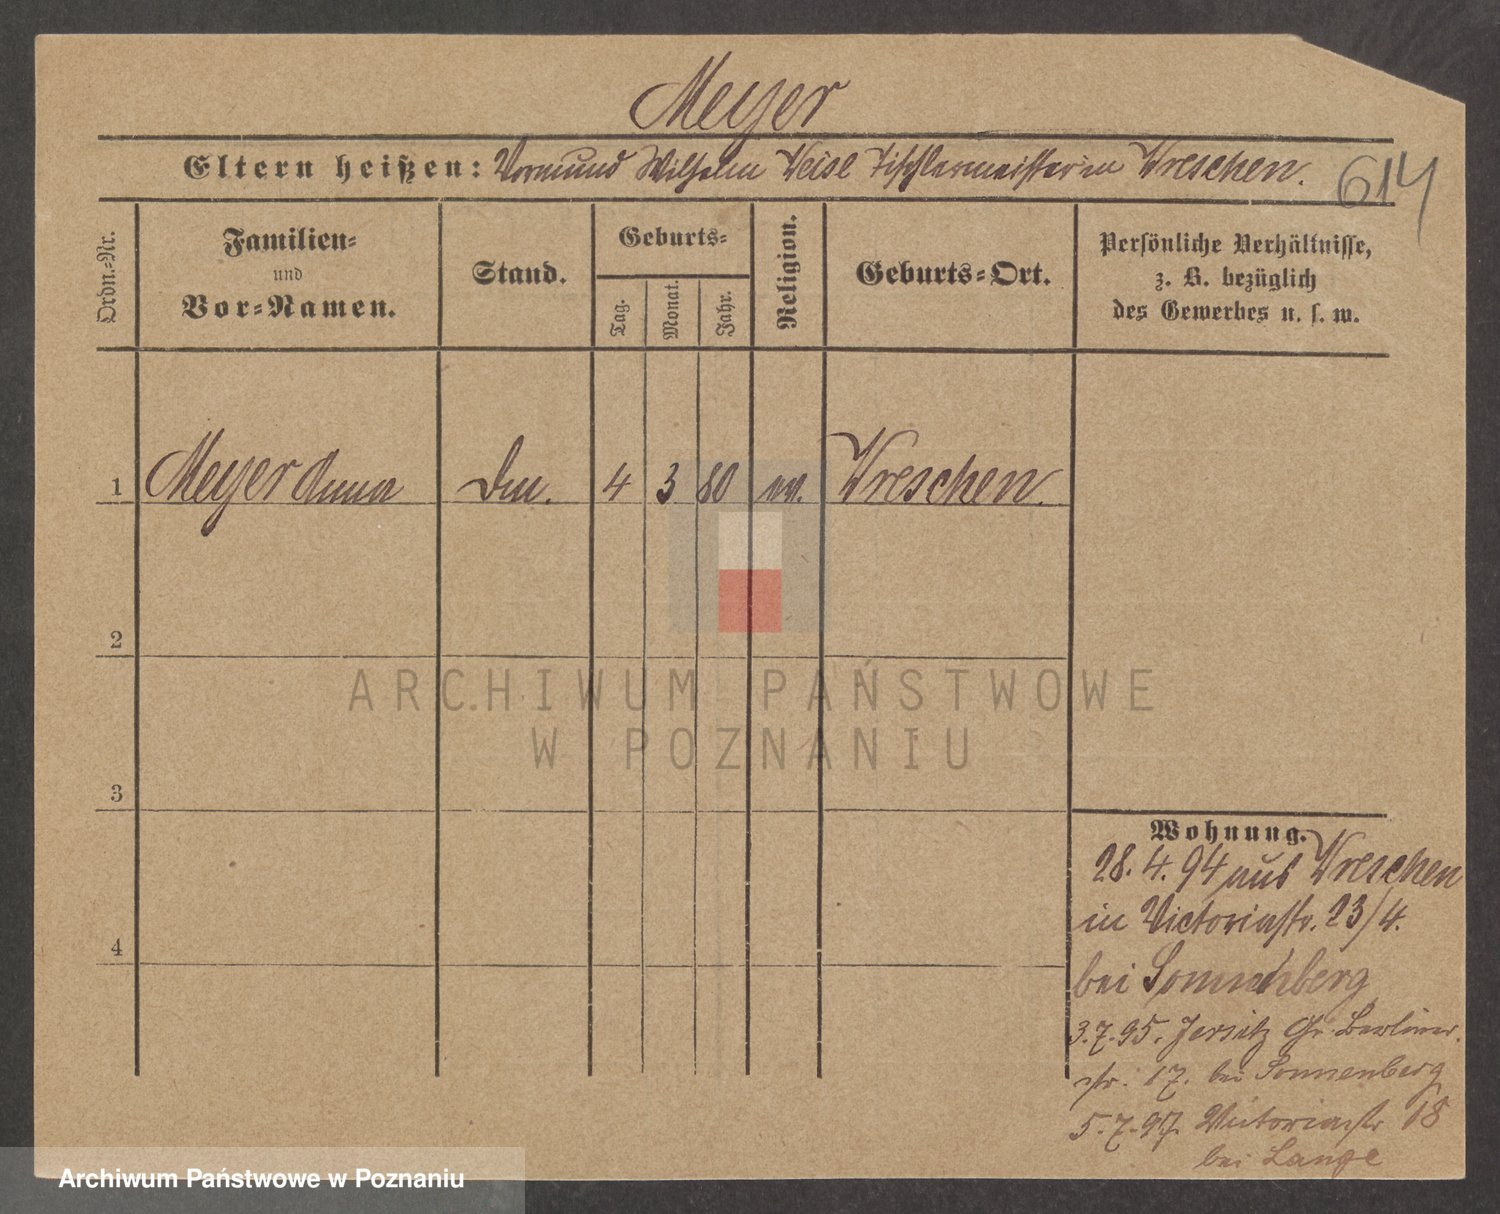 Meyer
Eltern heißen: Vormund Wilhelm Weise Tischlermeister in Wreschen.
614
Ordn.-Nr.
Familien-
und
Vor-Namen.
Stand.
Geburts-
Tag.
Monat.
Jahr.
Religion.
Geburts-Ort.
Persönliche Verhältnisse,
z. B. bezüglich
des Gewerbes u. s. w.
1 Meyer Anna 4 3 80 ev. Wreschen.
2
3
4
ARCHIWUM PAŃSTWOWE
W POZNANIU
Wohnung.
28. 4. 94 aus Wreschen
in Victoriastr. 23/4.
bei Sonnenberg
3.7.95. Jersitz Gr. Berliner-
str. 17. bei Sonnenberg
5.7.97. Victoriastr 18
bei Lange
Archiwum Państwowe w Poznaniu